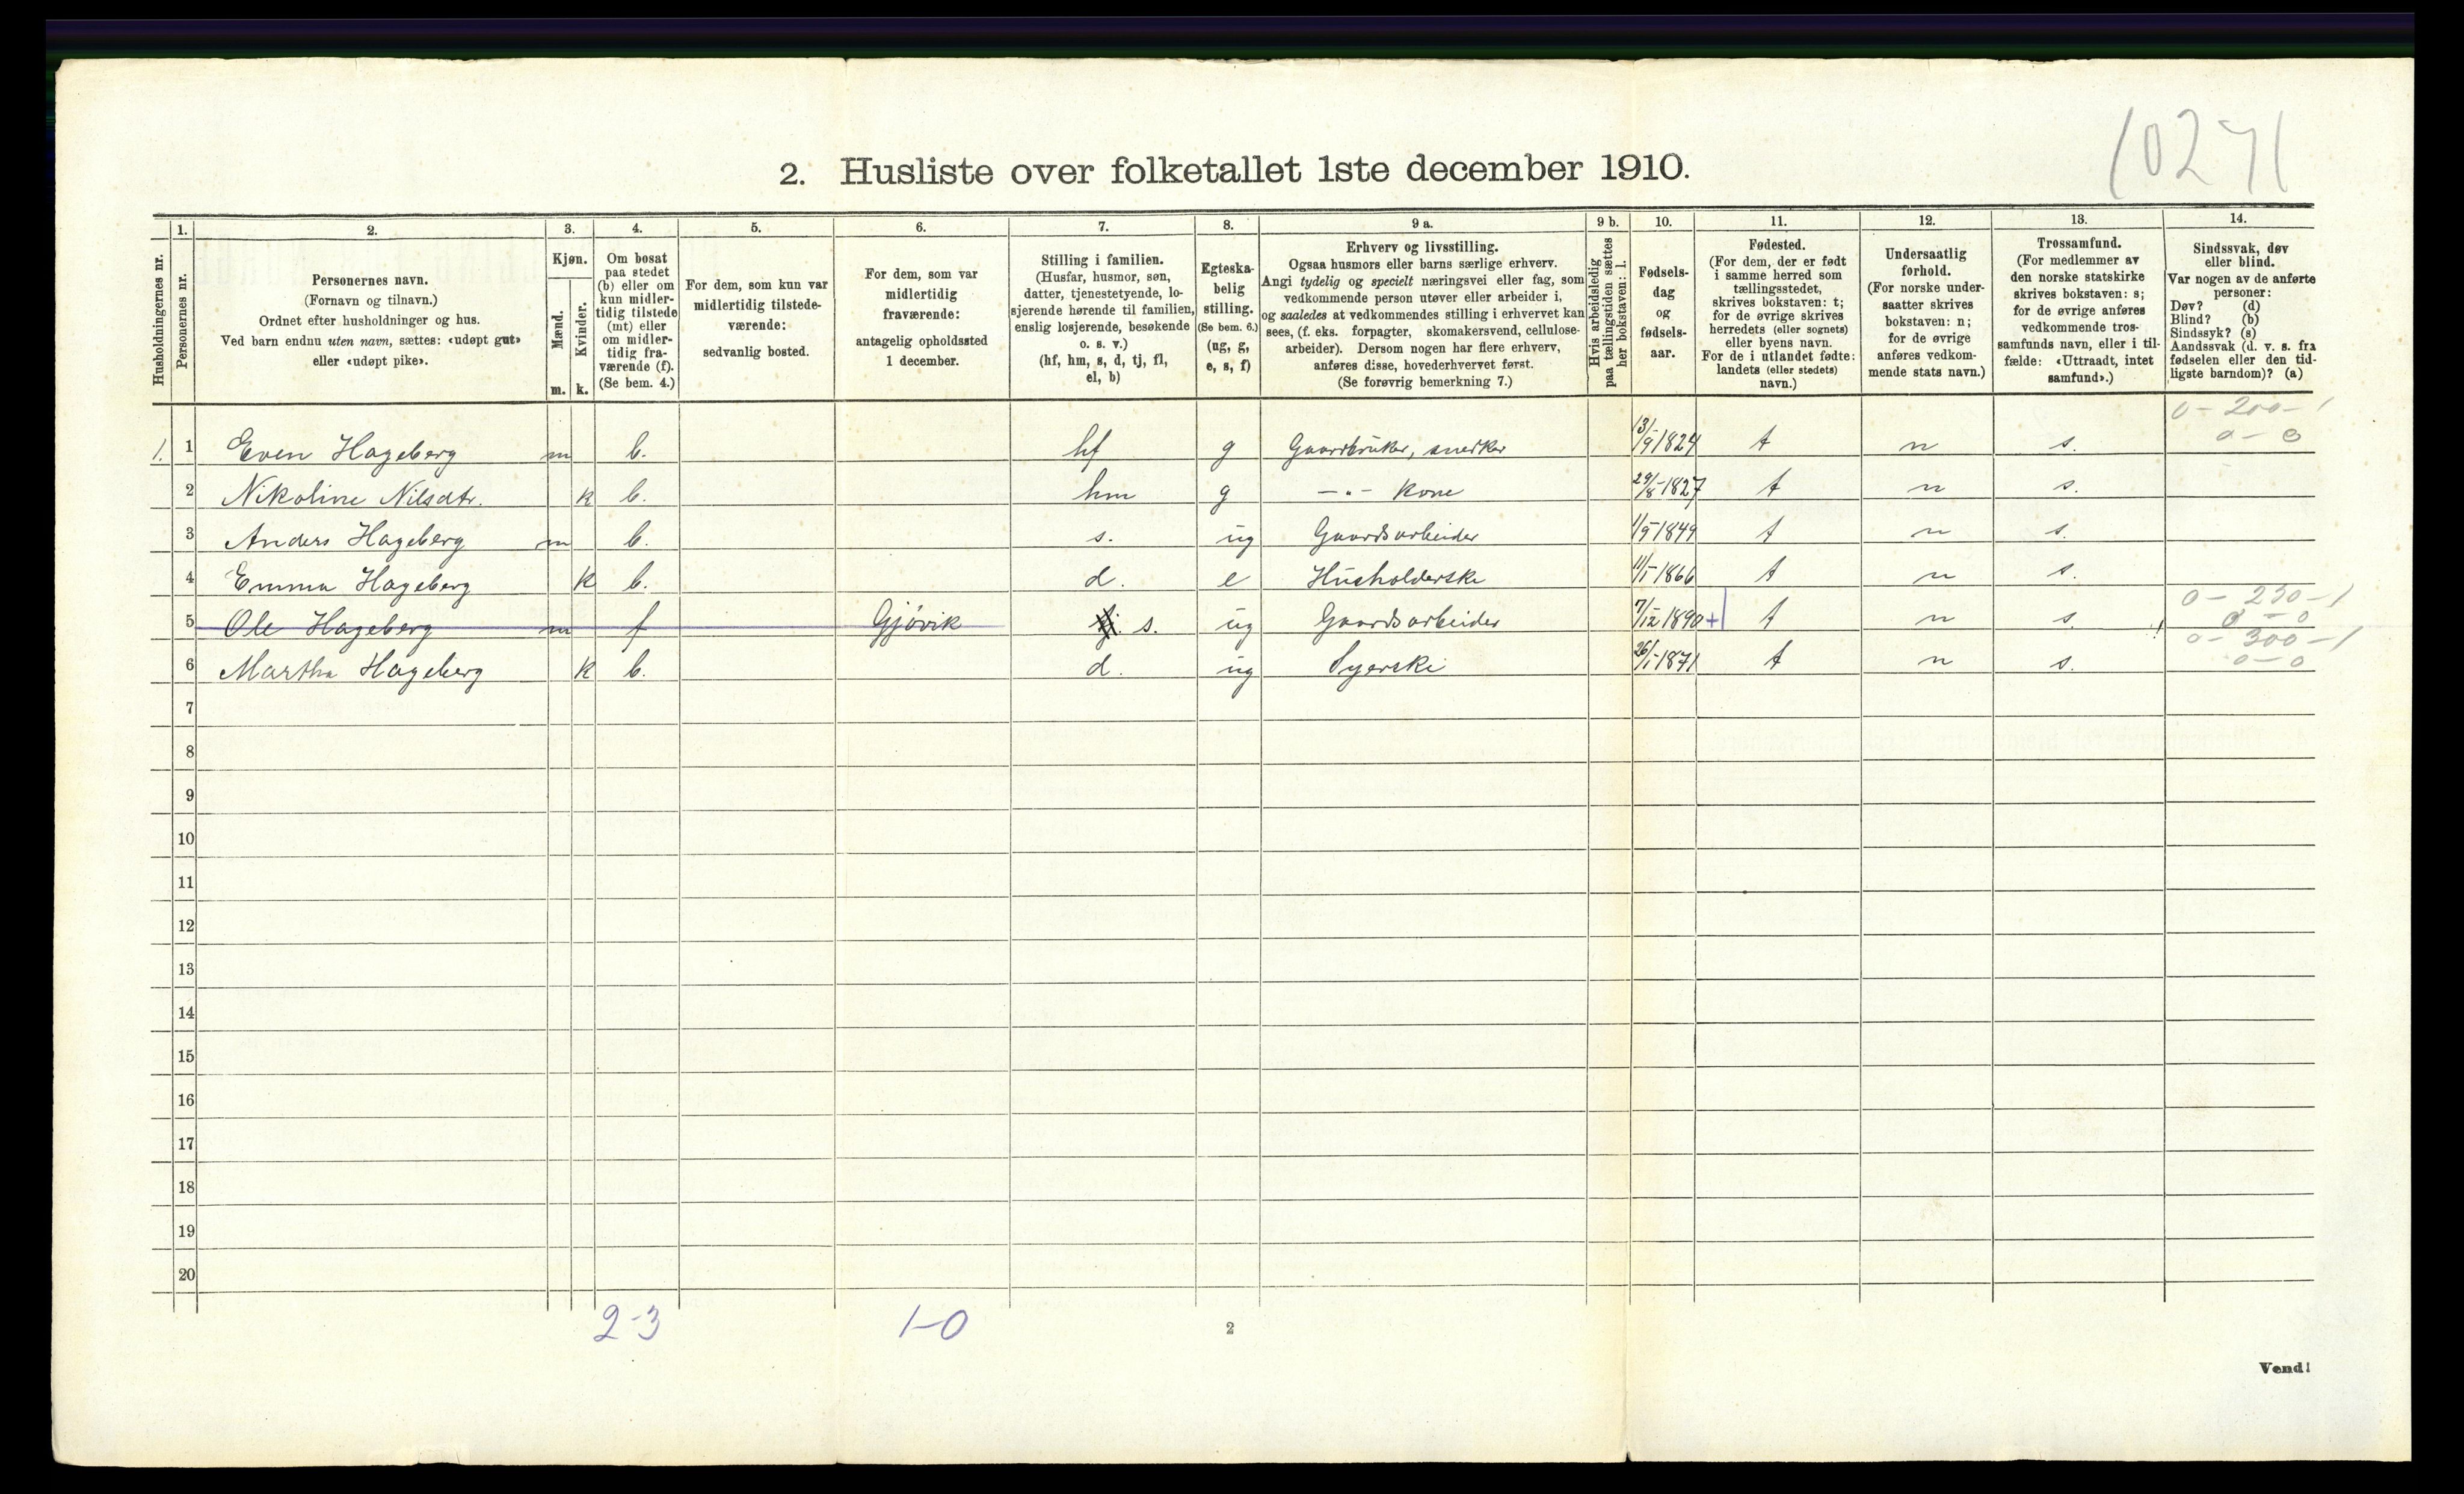 10271
2. Husliste over folketallet 1ste december 1910.
Husholdningernes nr.
1.
Personernes nr.
2.
Personernes navn.
(Fornavn og tilnavn.)
Ordnet efter husholdninger og hus.
Ved barn endnu uten navn, sættes: «udøpt gut»
eller «udøpt pike».
3.
Kjøn.
Mænd.
m.
Kvinder.
k.
4.
Om bosat
paa stedet
(b) eller om
kun midler-
tidig tilstede
(mt) eller
om midler-
tidig fra-
værende (f).
(Se bem. 4.)
5.
For dem, som kun var
midlertidig tilstede-
værende:
sedvanlig bosted.
6.
For dem, som var
midlertidig
fraværende:
antagelig opholdssted
1 december.
7.
Stilling i familien.
(Husfar, husmor, søn,
datter, tjenestetyende, lo-
sjerende hørende til familien,
enslig losjerende, besøkende
o. s. v.)
(hf, hm, s, d, tj, fl,
el, b)
8.
Egteska-
belig
stilling.
(Se bem. 6.)
(ug, g,
e, s, f)
9 a.
Erhverv og livsstilling.
Ogsaa husmors eller barns særlige erhverv.
Angi tydelig og specielt næringsvei eller fag, som
vedkommende person utøver eller arbeider i,
og saaledes at vedkommendes stilling i erhvervet kan
sees, (f. eks. forpagter, skomakersvend, cellulose-
arbeider). Dersom nogen har flere erhverv,
anføres disse, hovederhvervet først.
(Se forøvrig bemerkning 7.)
9 b.
Hvis arbeidsledig
paa tællingstiden sættes
her bokstaven: l.
10.
Fødsels-
dag
og
fødsels-
aar.
11.
Fødested.
(For dem, der er født
i samme herred som
tællingsstedet,
skrives bokstaven: t;
for de øvrige skrives
herredets (eller sognets)
eller byens navn.
For de i utlandet fødte:
landets (eller stedets)
navn.)
12.
Undersaatlig
forhold.
(For norske under-
saatter skrives
bokstaven: n;
for de øvrige
anføres vedkom-
mende stats navn.)
13.
Trossamfund.
(For medlemmer av
den norske statskirke
skrives bokstaven: s;
for de øvrige anføres
vedkommende tros-
samfunds navn, eller i til-
fælde: «Uttraadt, intet
samfund».)
14.
Sindssvak, døv
eller blind.
Var nogen av de anførte
personer:
Døv? (d)
Blind? (b)
Sindssyk? (s)
Aandssvak (d. v. s. fra
fødselen eller den tid-
ligste barndom)? (a)
0 - 200 - 1
0 - 0
1. 1 Even Hageberg m b. hf g Gaardbruker, snerker 13/9 1824 t n s.
2 Nikoline Nilsdtr. k b. hm g -"- Kone 29/8-1827 t n s.
3 Anders Hageberg m b. s. ug Gaardsarbeider 1/9-1849 t n s.
4 Emma Hageberg k b. d. e Husholderske 11/1-1866 t n s.
0 - 230 - 1
0 - 0
5 Ole Hageberg m f Gjøvik s. ug Gaardsarbeider 7/12 1890 + t n s.
0 - 300 - 1
0 - 0
6 Martha Hageberg k b. d. ug Syerske 26/1-1871 t n s.
7
8
9
10
11
12
13
14
15
16
17
18
19
20
2-3 1-0
2
Vend!